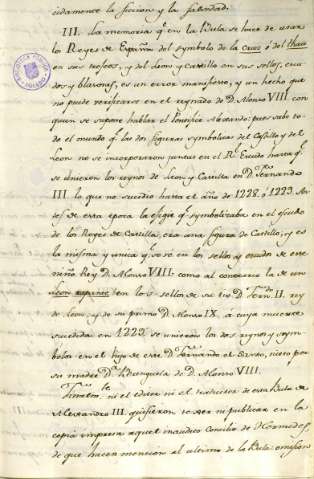 cidamente la ficcion y la falsedad.
III. La memoria q.e en la Bula se hace de usar
los Reyes de España del symbolo de la Cruz ó del thau
en sus trofeos, y del Leon y Castillo en sus sellos, escu-
dos y blasones, es un error manifiesto, y un hecho que
no puede verificarse en el reynado de D. Alonso VIII. con
quien se supone hablar el Pontifice Alexandro: pues sabe to-
do el mundo q.e las dos figuras symbolicas del Castillo y del
Leon no se incorporaron juntas en el R.l Escudo hasta q.e
se unieron los reynos de Leon y Castilla en D. Fernando
III. lo que no sucedió hasta el año de 1228. ó 1229. An-
tes de esta epoca la efigie q.e symbolizaba en el escudo
de los Reyes de Castilla, era una figura de Castillo; y es
la misma y unica q.e se ve en los sellos y escudo de este
mismo Rey D. Alonso VIII. como al contrario la de un
Leon rapante en los sellos de su tio D. Fern.do II. rey
de Leon, y de su primo D. Alonso IX. á cuya muerte
sucedida en 1229. se unieron los dos reynos y sym-
bolos en el hijo de este D. Fernando el Santo, nieto por
su madre D.a Berenguela de D. Alonso VIII.
ni el editor ni el traductor de esta Bula de
Alexandro III. quisieron poner ni publicar en la
copia impresa aquel inaudito Concilio de Hormedes,
de que hacen mencion al ultimo de la Bula: omision